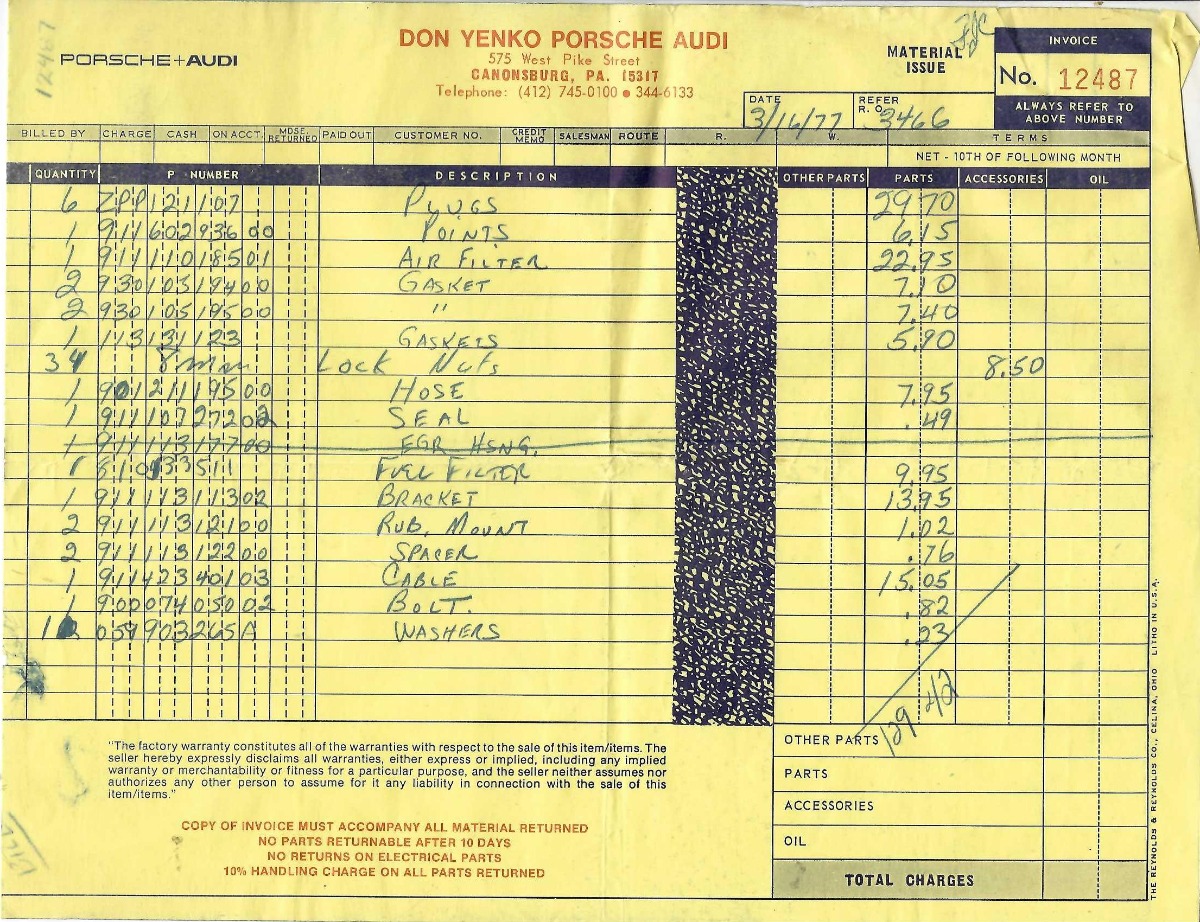 12487
PORSCHE+AUDI
DON YENKO PORSCHE AUDI
575 West Pike Street
CANONSBURG, PA. 15317
Telephone: (412) 745-0100 ● 344-6133
MATERIAL ISSUE
INVOICE
No. 12487
ALWAYS REFER TO ABOVE NUMBER
DATE 3/16/77 REFER R. O. 3466
BILLED BY CHARGE CASH ON ACCT. MDSE. RETURNED PAID OUT CUSTOMER NO. CREDIT MEMO SALESMAN ROUTE R. W. TERMS
NET - 10TH OF FOLLOWING MONTH
QUANTITY P NUMBER DESCRIPTION OTHER PARTS PARTS ACCESSORIES OIL
6 ZPP121107 PLUGS 29.70
1 911 602 936 00 POINTS 6.15
1 911 110 185 01 AIR FILTER 22.95
2 930 103 194 00 GASKET 7.10
2 930 105 195 00 " 7.40
1 113131123 GASKETS 5.90
34 8mm LOCK NUTS 8.50
1 901 211 195 00 HOSE 7.95
1 911 107 272 02 SEAL .49
1 911 113 177 00 EGR HSNG.
1 FUEL FILTER 9.95
1 911 113 113 02 BRACKET 13.95
2 911 113 121 00 RUB. MOUNT 1.02
2 911 113 122 00 SPACER .76
1 911 423 401 03 CABLE 15.05
1 900 074 050 02 BOLT. .82
059 903 265A WASHERS .23
129 42
OTHER PARTS
PARTS
ACCESSORIES
OIL
TOTAL CHARGES
"The factory warranty constitutes all of the warranties with respect to the sale of this item/items. The
seller hereby expressly disclaims all warranties, either express or implied, including any implied
warranty or merchantability or fitness for a particular purpose, and the seller neither assumes nor
authorizes any other person to assume for it any liability in connection with the sale of this
item/items."
COPY OF INVOICE MUST ACCOMPANY ALL MATERIAL RETURNED
NO PARTS RETURNABLE AFTER 10 DAYS
NO RETURNS ON ELECTRICAL PARTS
10% HANDLING CHARGE ON ALL PARTS RETURNED
THE REYNOLDS & REYNOLDS CO., CELINA, OHIO LITHO IN U.S.A.